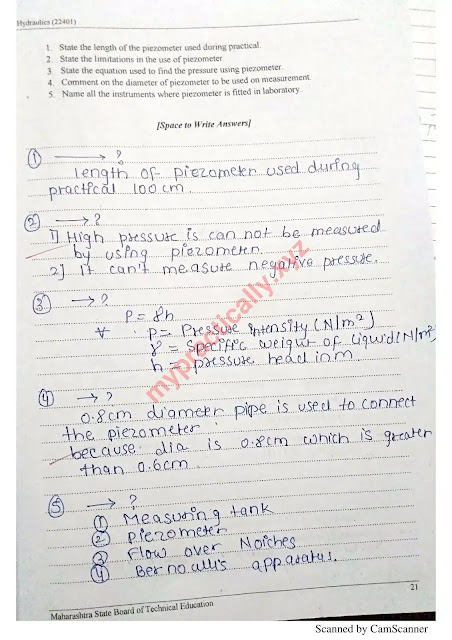 Hydraulics (22401)
1. State the length of the piezometer used during practical.
2. State the limitations in the use of piezometer
3. State the equation used to find the pressure using piezometer.
4. Comment on the diameter of piezometer to be used on measurement.
5. Name all the instruments where piezometer is fitted in laboratory.
[Space to Write Answers]
① → ?
length of piezometer used during
practical 100cm.
② → ?
1) High pressure is can not be measured
by using piezometer.
2] It can't measure negative pressure.
③ → ?
P = γh
P = Pressure Intensity (N/m²)
γ = Specific weight of liquid (N/m²
h = pressure head in m
④ → ?
0.8cm diameter pipe is used to connect
the piezometer
because dia is 0.8cm which is greater
than 0.6cm.
⑤ → ?
① Measuring tank
② piezometer
③ Flow over Notches
④ Bernoulli's apparatus.
21
Maharashtra State Board of Technical Education
mypractically.xyz
Scanned by CamScanner